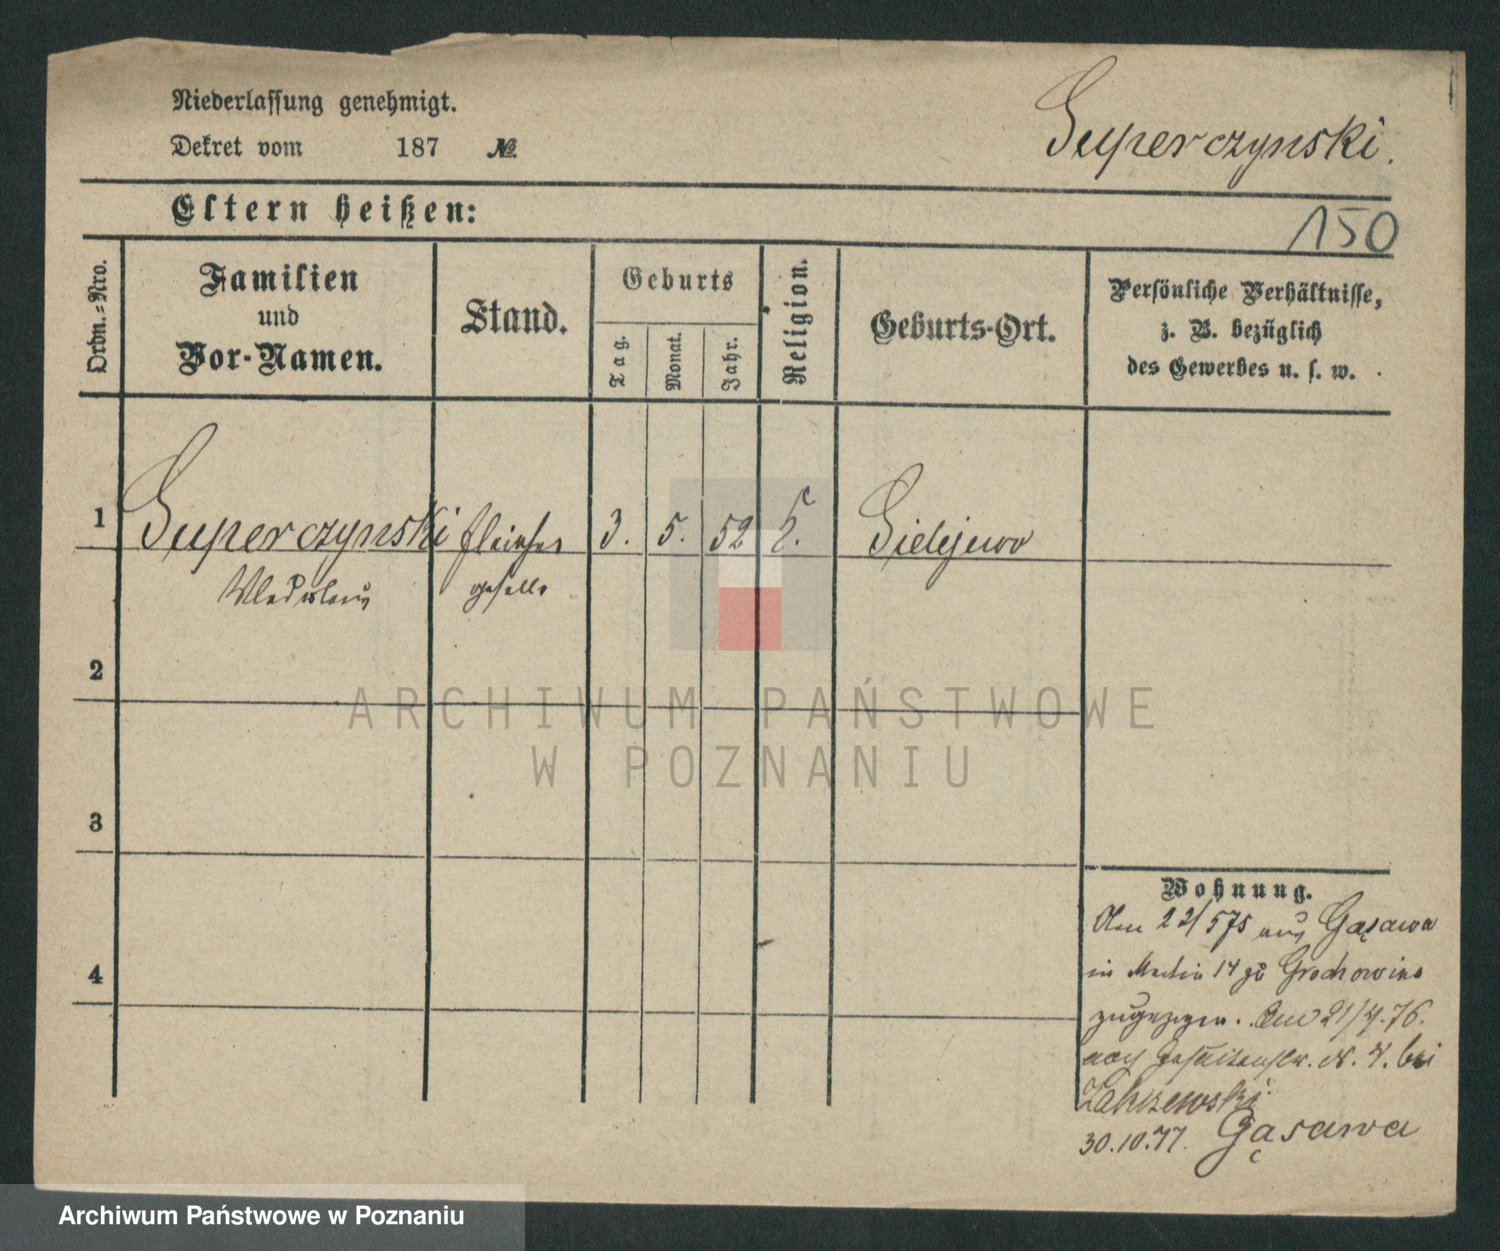 Niederlassung genehmigt.
Dekret vom 187 №
Superczynski.
Eltern heißen:
150
Ordn.-Nro.
Familien
und
Vor-Namen.
Stand.
Geburts
Tag.
Monat.
Jahr.
Religion.
Geburts-Ort.
Persönliche Verhältnisse,
z. B. bezüglich
des Gewerbes u. s. w.
1 Superczynski fleischer 3. 5. 52 k. Sielejewo
Wladislaus geselle
2
3
4
ARCHIWUM PAŃSTWOWE
W POZNANIU
Wohnung.
Am 22/5 75 aus Gąsawa
in Martin 14 zu Grochowina
zugezogen. Am 21/4.76.
nach Jesuitenstr. N. 4. bei
Zakrzewski
30.10.77. Gąsawa
Archiwum Państwowe w Poznaniu